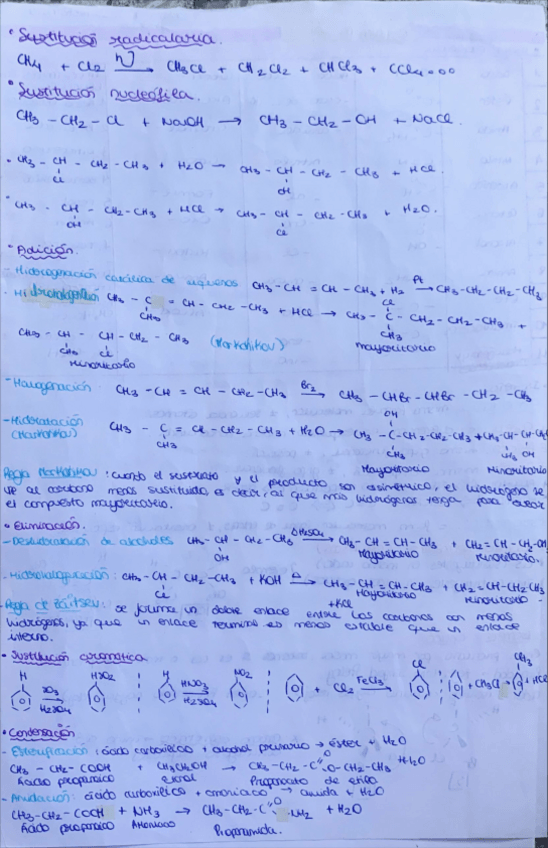 • Sustitución radicalaria.
CH4 + Cl2 hν→ CH3Cl + CH2Cl2 + CHCl3 + CCl4
• Sustitución nucleófila.
CH3 - CH2 - Cl + NaOH → CH3 - CH2 - OH + NaCl.
• CH3 - CH - CH2 - CH3 + H2O → CH3 - CH - CH2 - CH3 + HCl.
Cl OH
• CH3 - CH - CH2 - CH3 + HCl → CH3 - CH - CH2 - CH3 + H2O.
OH Cl
• Adición.
- Hidrogenación catalítica de alquenos CH3 - CH = CH - CH3 + H2 Pt→ CH3 - CH2 - CH2 - CH3
Cl
CH3 - C = CH - CH2 - CH3 + HCl → CH3 - C - CH2 - CH2 - CH3 +
CH3 CH3
mayoritario
CH3 - CH - CH - CH2 - CH3 (Markonikov)
CH3 Cl
Minoritario
- Halogenación CH3 - CH = CH - CH2 - CH3 Br2→ CH3 - CHBr - CHBr - CH2 - CH3
OH
- Hidratación CH3 - C = CH - CH2 - CH3 + H2O → CH3 - C - CH2 - CH2 - CH3 + CH3 - CH - CH
(Markonikov) CH3 CH3 CH3 OH
Mayoritario Minoritario
Regla Markonikov: cuando el sustrato y el producto son asimétricos, el hidrógeno se
al carbono menos sustituido es decir, al que más hidrógenos tenga para
el compuesto mayoritario.
• Eliminación.
- Deshidratación de alcoholes CH3 - CH - CH2 - CH3 H2SO4→ CH3 - CH = CH - CH3 + CH2 = CH - CH2 - CH3
OH Mayoritario Minoritario.
CH3 - CH - CH2 - CH3 + KOH Δ→ CH3 - CH = CH - CH3 + CH2 = CH - CH2 CH3
Cl Mayoritario Minoritario
+ KCl
Regla de : se forma un doble enlace entre los carbonos con menos
hidrógenos, ya que un enlace terminal es menos estable que un enlace
interno.
• Sustitución aromática
H HSO3 H NO2 Cl CH3
SO3→ HNO3→ + Cl2 FeCl3→ + CH3Cl + HCl
H2SO4 H2SO4
• Condensación
- Esterificación: ácido carboxílico + alcohol primario → éster + H2O
CH3 - CH2 - COOH + CH3CH2OH → CH3 - CH2 - C O O - CH2 - CH3 + H2O
Ácido propanoico Etanol Propanoato de etilo
- Amidación: ácido carboxílico + amoniaco → amida + H2O
CH3 - CH2 - COOH + NH3 → CH3 - CH2 - C O NH2 + H2O
Ácido propanoico Amoniaco Propanamida.